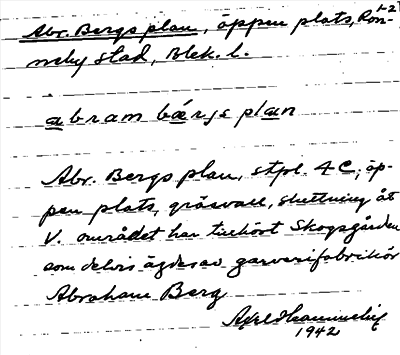 Abr. Bergs plan, öppen plats, Ron- 1-2
neby stad, Blek. l.
abram bærjs plan
Abr. Bergs plan, stpl. 4 C; öp-
pen plats, gräsvall, sluttning åt
V. området har tillhört Skogsgården
som delvis ägdes av garverifabrikör
Abraham Berg
Axel
1942